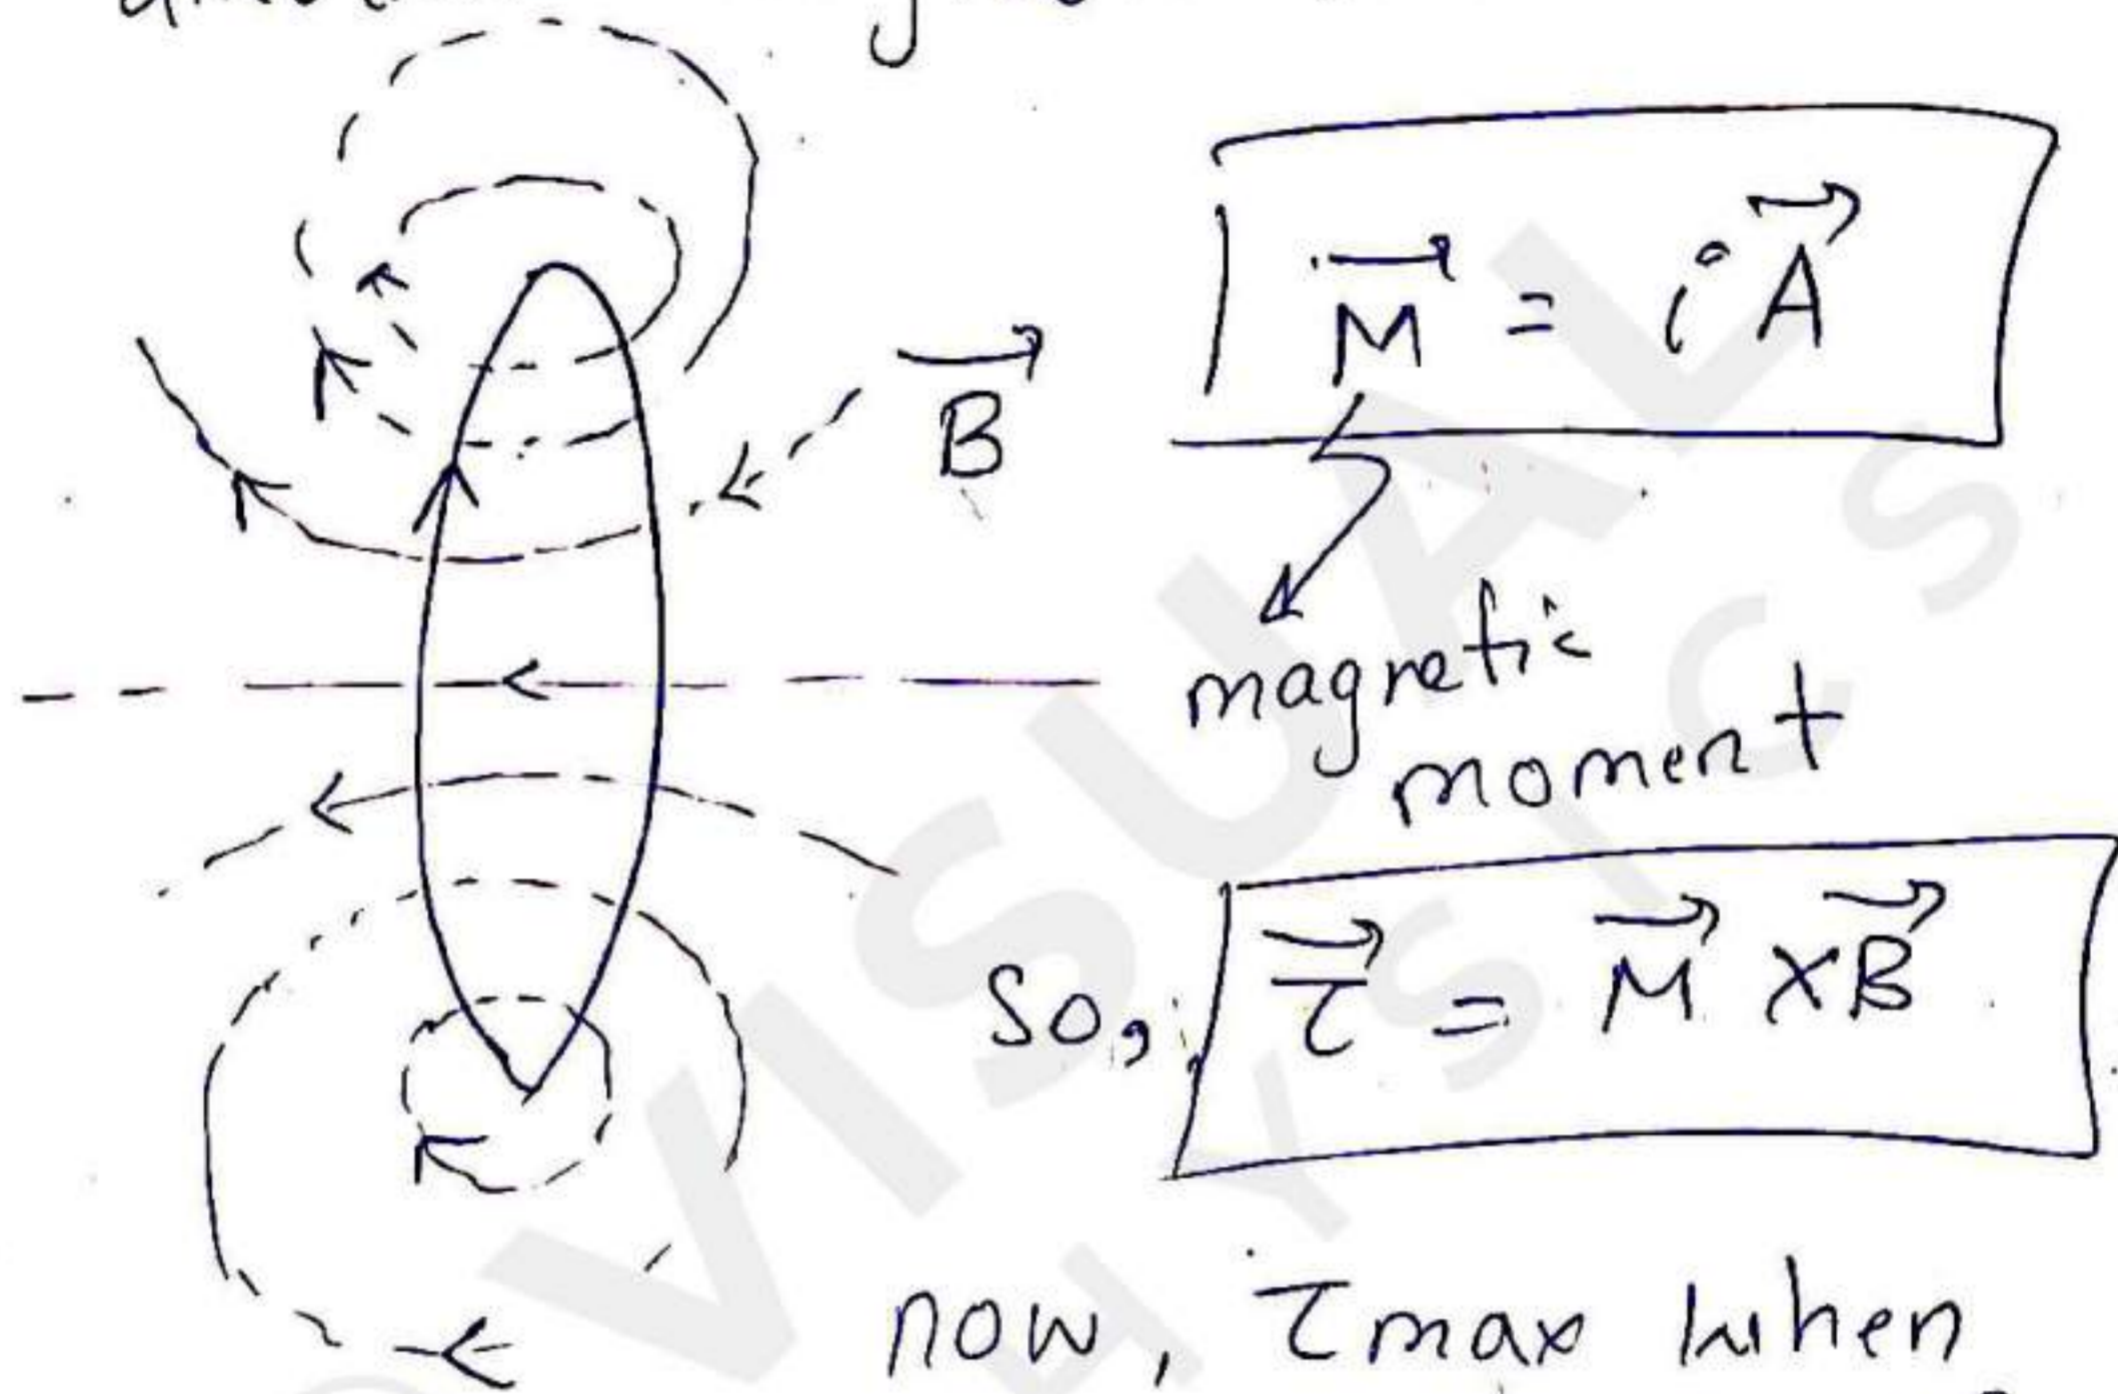 B⃗
M⃗ = i A⃗
magnetic
moment
So, τ⃗ = M⃗ × B⃗
now, τmax when
VISUAL